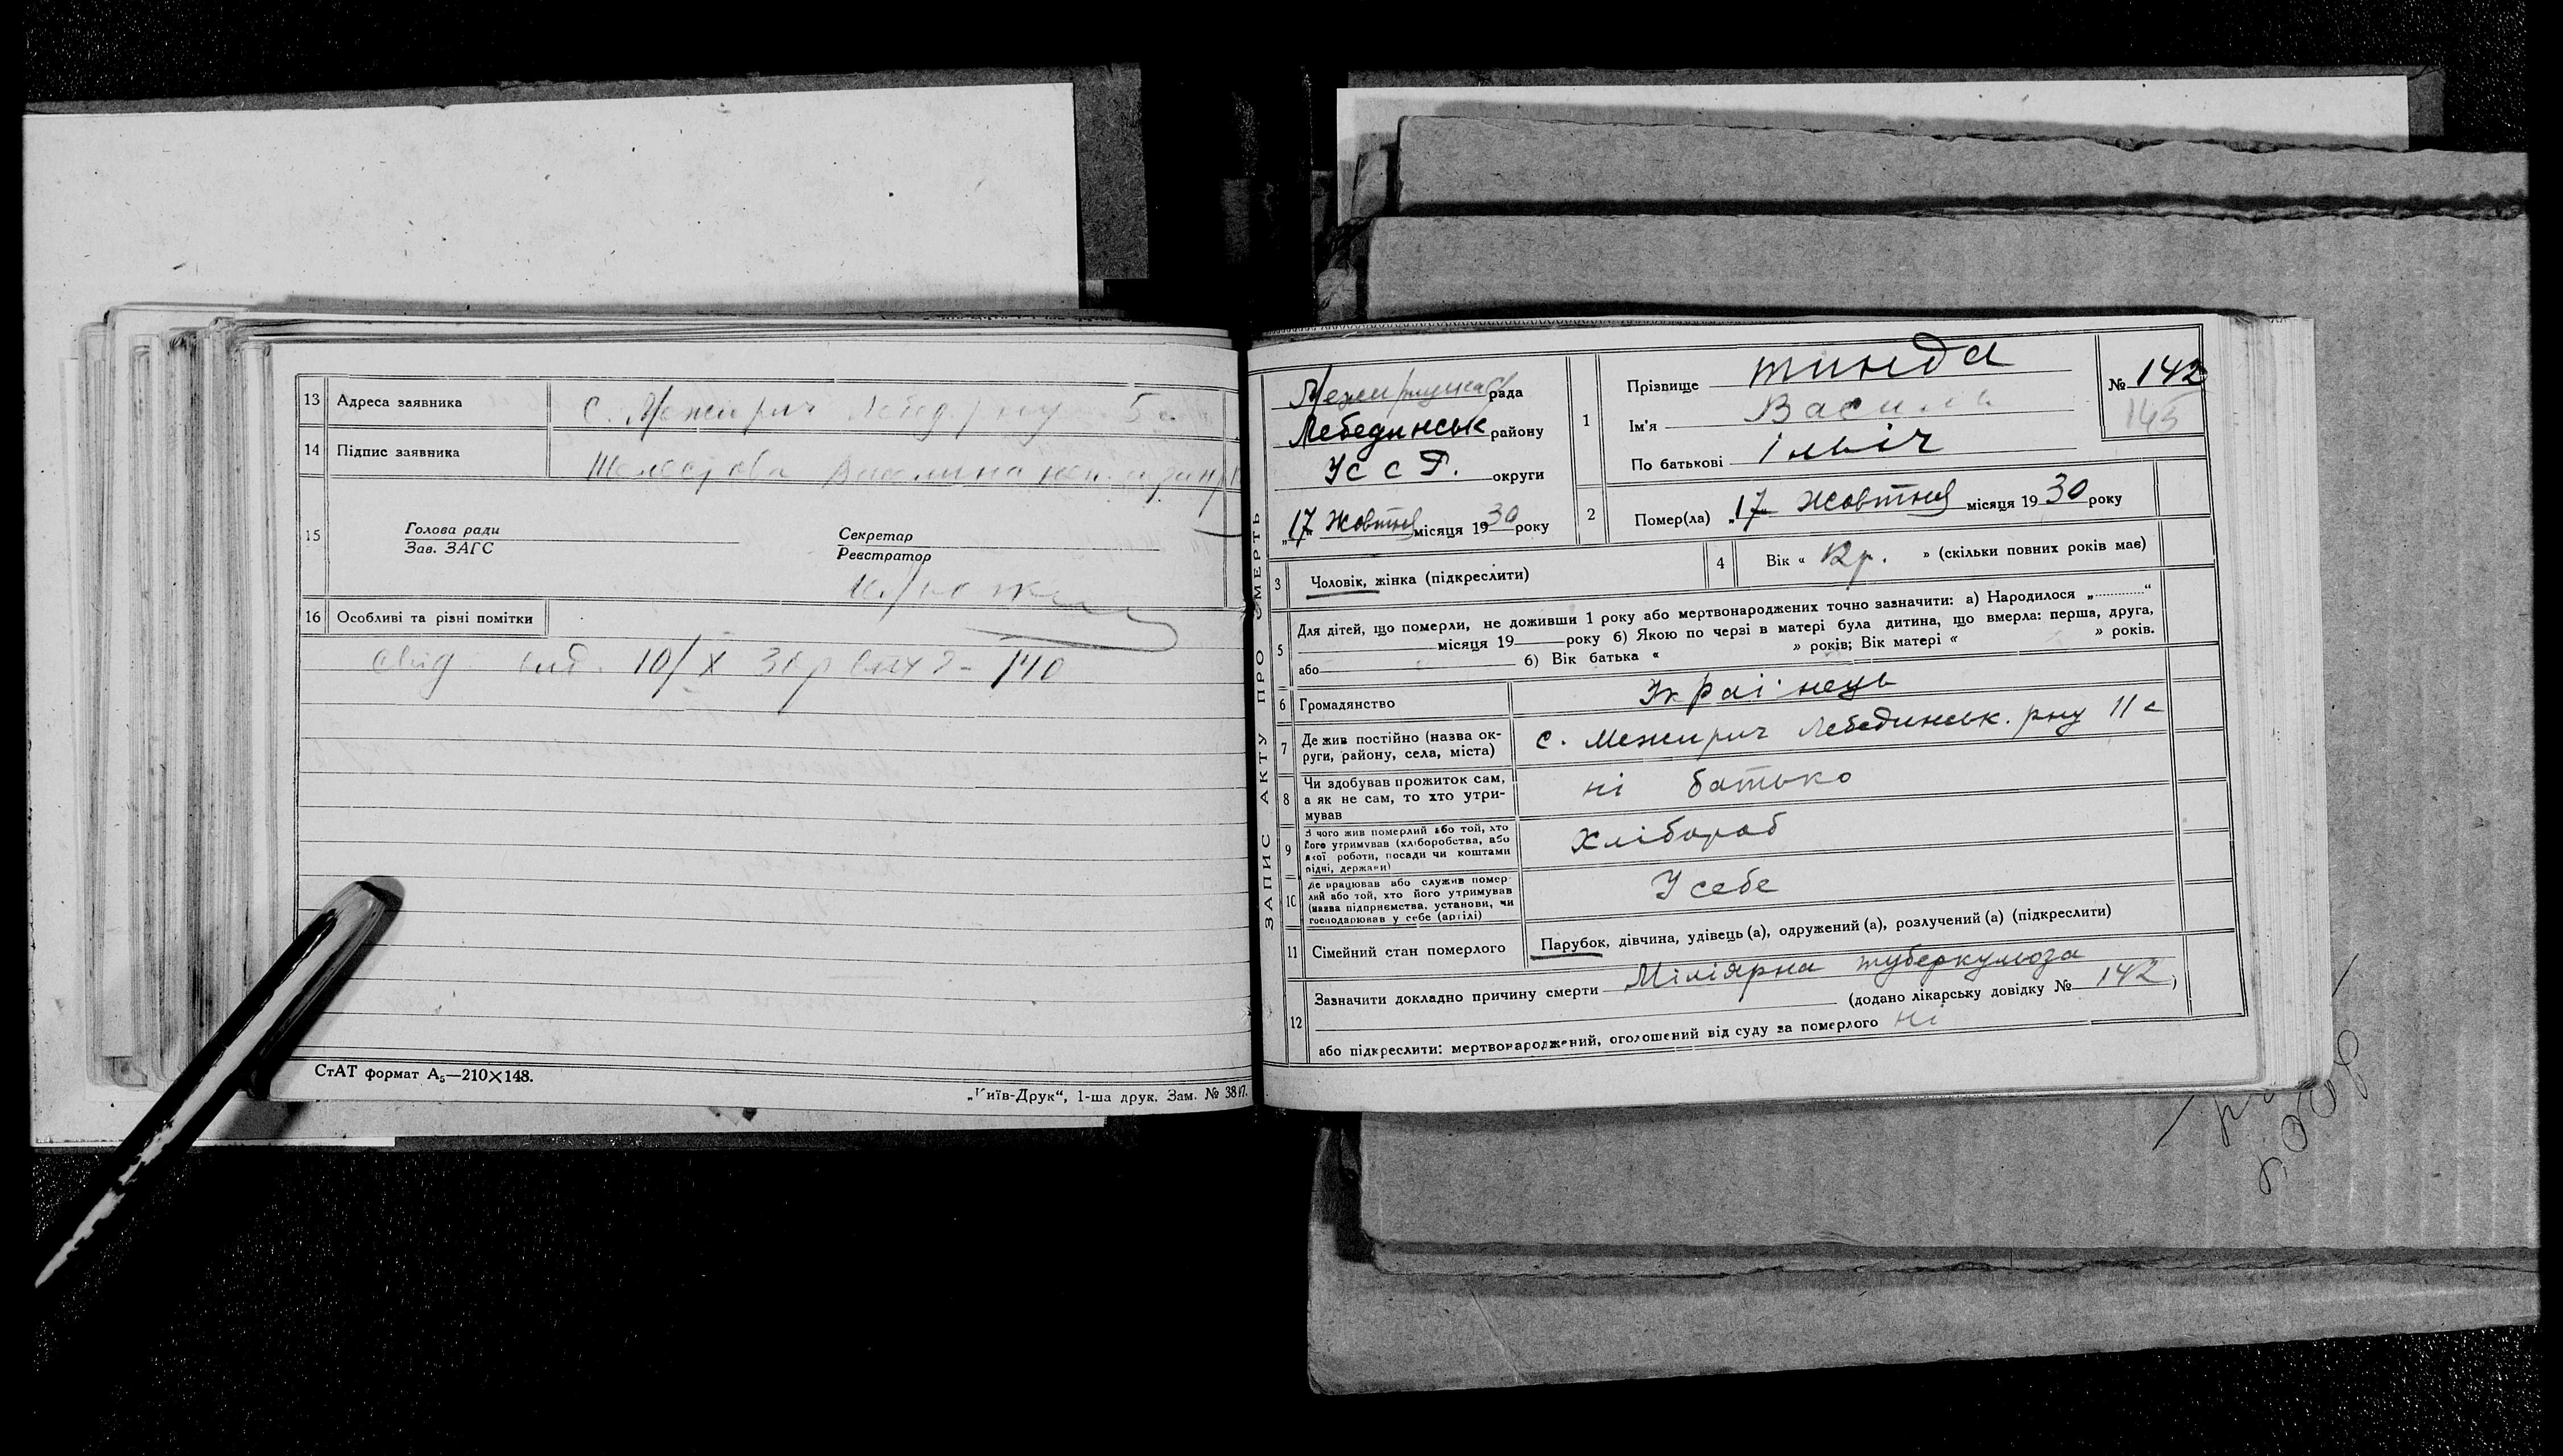 13 Адреса заявника С. Межирич Лебед. рну 5 с
14 Підпис заявника
15 Голова ради
Зав. ЗАГС
Секретар
Реєстратор
16 Особливі та різні помітки
свід вид. 10/X 30р 140
СтАТ формат А₅—210×148.
„Київ-Друк“, 1-ша друк. Зам. № 3817.
ЗАПИС АКТУ ПРО СМЕРТЬ
рада
Лебединськ району
УССР. округи
„17“ Жовтня місяця 1930 року
1 Прізвище тинда
Ім'я Василь
По батькові Ільіч
№ 142
145
2 Помер(ла) „17“ Жовтня місяця 1930 року
3 Чоловік, жінка (підкреслити)
4 Вік « 12р. » (скільки повних років має)
5 Для дітей, що померли, не доживши 1 року або мертвонароджених точно зазначити: а) Народилося „............“
місяця 19 року б) Якою по черзі в матері була дитина, що вмерла: перша, друга,
або б) Вік батька « » років; Вік матері « » років.
6 Громадянство Украі·нець
7 Де жив постійно (назва ок-
руги, району, села, міста)
с. Межирич Лебединськ. рну 11 с
8 Чи здобував прожиток сам,
а як не сам, то хто утри-
мував
ні батько
9 З чого жив померлий або той, хто
його утримував (хліборобства, або
якої роботи, посади чи коштами
рідні, держави)
Хлібороб
10 Де працював або служив помер-
лий або той, хто його утримував
(назва підприємства, установи, чи
господарював у себе (артілі)
У себе
11 Сімейний стан померлого Парубок, дівчина, удівець (а), одружений (а), розлучений (а) (підкреслити)
12 Зазначити докладно причину смерти Міліярна туберкульоза
(додано лікарську довідку № 142)
або підкреслити: мертвонароджений, оголошений від суду за померлого ні